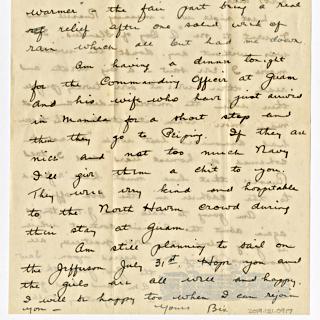 warmer & the fair part being a real
relief after one solid week of
rain which all but had me down
Am having a dinner tonight
for the Commanding Officer at Guam
and his wife who have just arrived
in Manila for a short stop and
then they go to Peiping. If they are
nice and not too much Navy
I'll give them a chit to you.
They were very kind and hospitable
to the North Haven crowd during
their stay at Guam.
Am still planning to sail on
the Jefferson July 31st Hope you and
the girls are all well and happy.
I will be happy too when I can rejoin
you — Yours Bix
2019.121.0917